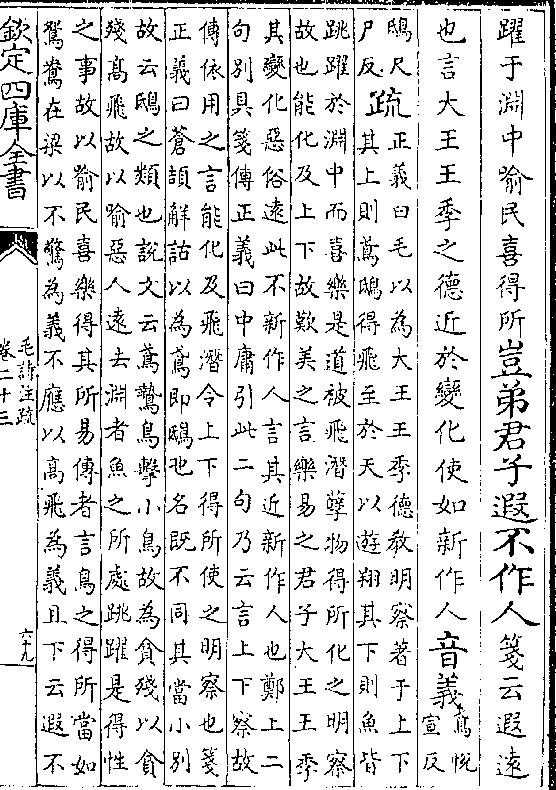 躍于淵中喻民喜得所豈弟君子遐不作人箋云遐遠
也言大王王季之德近於變化使如新作人音義鳶悅
宣反
鴟尺
尸反疏正義曰毛以為大王王季德教明察著于上下
其上則鳶鴟得飛至於天以遊翔其下則魚皆
跳躍於淵中而喜樂是道被飛潛孽物得所化之明察
故也能化及上下故歎美之言樂易之君子大王王季
其變化惡俗遠此不新作人言其近新作人也鄭上二
句別具箋傳正義曰中庸引此二句乃云言上下察故
傳依用之言能化及飛潛令上下得所使之明察也箋
正義曰蒼頡解詁以為鳶即鴟也名既不同其當小別
故云鴟之類也說文云鳶鷙鳥擊小鳥故為貪殘以貪
殘髙飛故以喻惡人遠去淵者魚之所處跳躍是得性
之事故以喻民喜樂得其所易傳者言鳥之得所當如
鴛鴦在梁以不驚為義不應以髙飛為義且下云遐不
欽定四庫全書
毛詩注疏
卷二十三
六十九